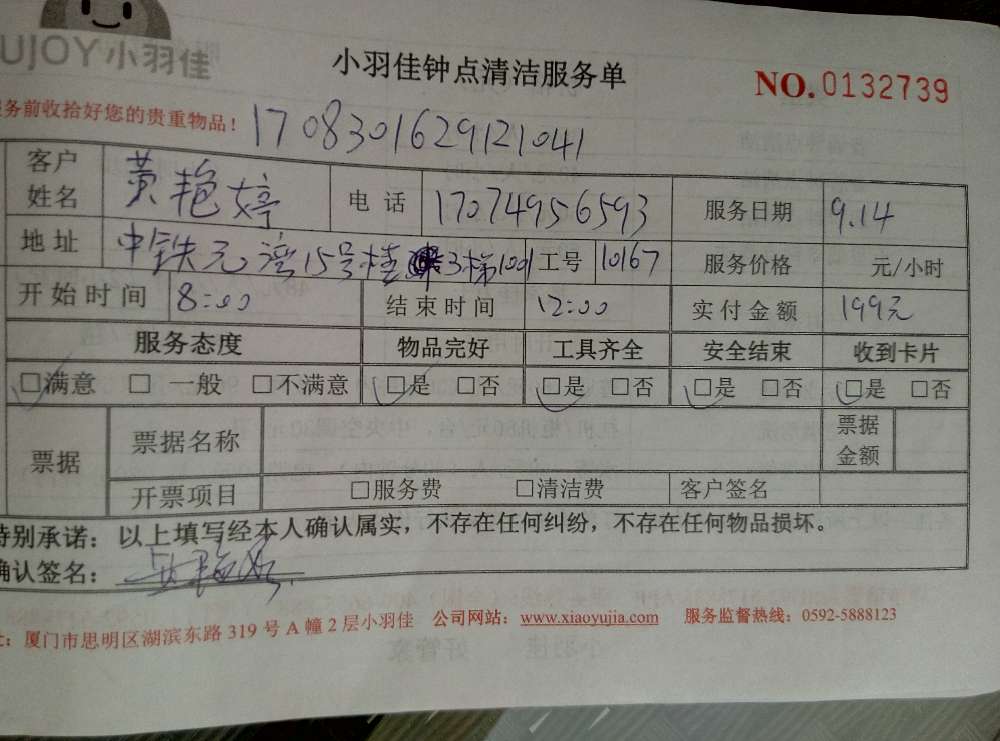 UJOY小羽佳
小羽佳钟点清洁服务单
NO.0132739
务前收拾好您的贵重物品!
1708301629121041
客户姓名 黄艳婷 电话 17074956593 服务日期 9.14
地址 中铁元湾15号楼 3梯1001 工号 10167 服务价格 元/小时
开始时间 8:00 结束时间 12:00 实付金额 199元
服务态度 物品完好 工具齐全 安全结束 收到卡片
□满意 □ 一般 □不满意 □是 □否 □是 □否 □是 □否 □是 □否
票据 票据名称 票据金额
开票项目 □服务费 □清洁费 客户签名
特别承诺：以上填写经本人确认属实，不存在任何纠纷，不存在任何物品损坏。
确认签名：
厦门市思明区湖滨东路 319 号 A 幢 2 层小羽佳 公司网站：www.xiaoyujia.com 服务监督热线：0592-5888123